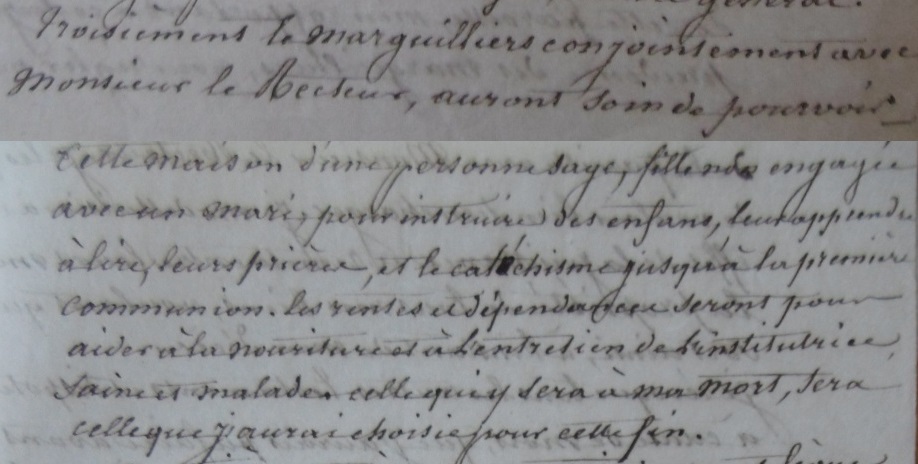 général.
Troisiement le marguilliers conjointement avec
Monsieur le Recteur, auront soin de pourvoir
Cette maison d'une personne sage, fille non engagée
avec un mari, pour instruire des enfans, leur apprendre
à lire, leurs prières, et le catéchisme jusqu'à la première
communion. les rentes et dépendances seront pour
aider à la nouriture et à l'entretien de l'institutrice,
saine et malade. celle qui y sera à ma mort, sera
celle que j'aurai choisie pour cette fin.